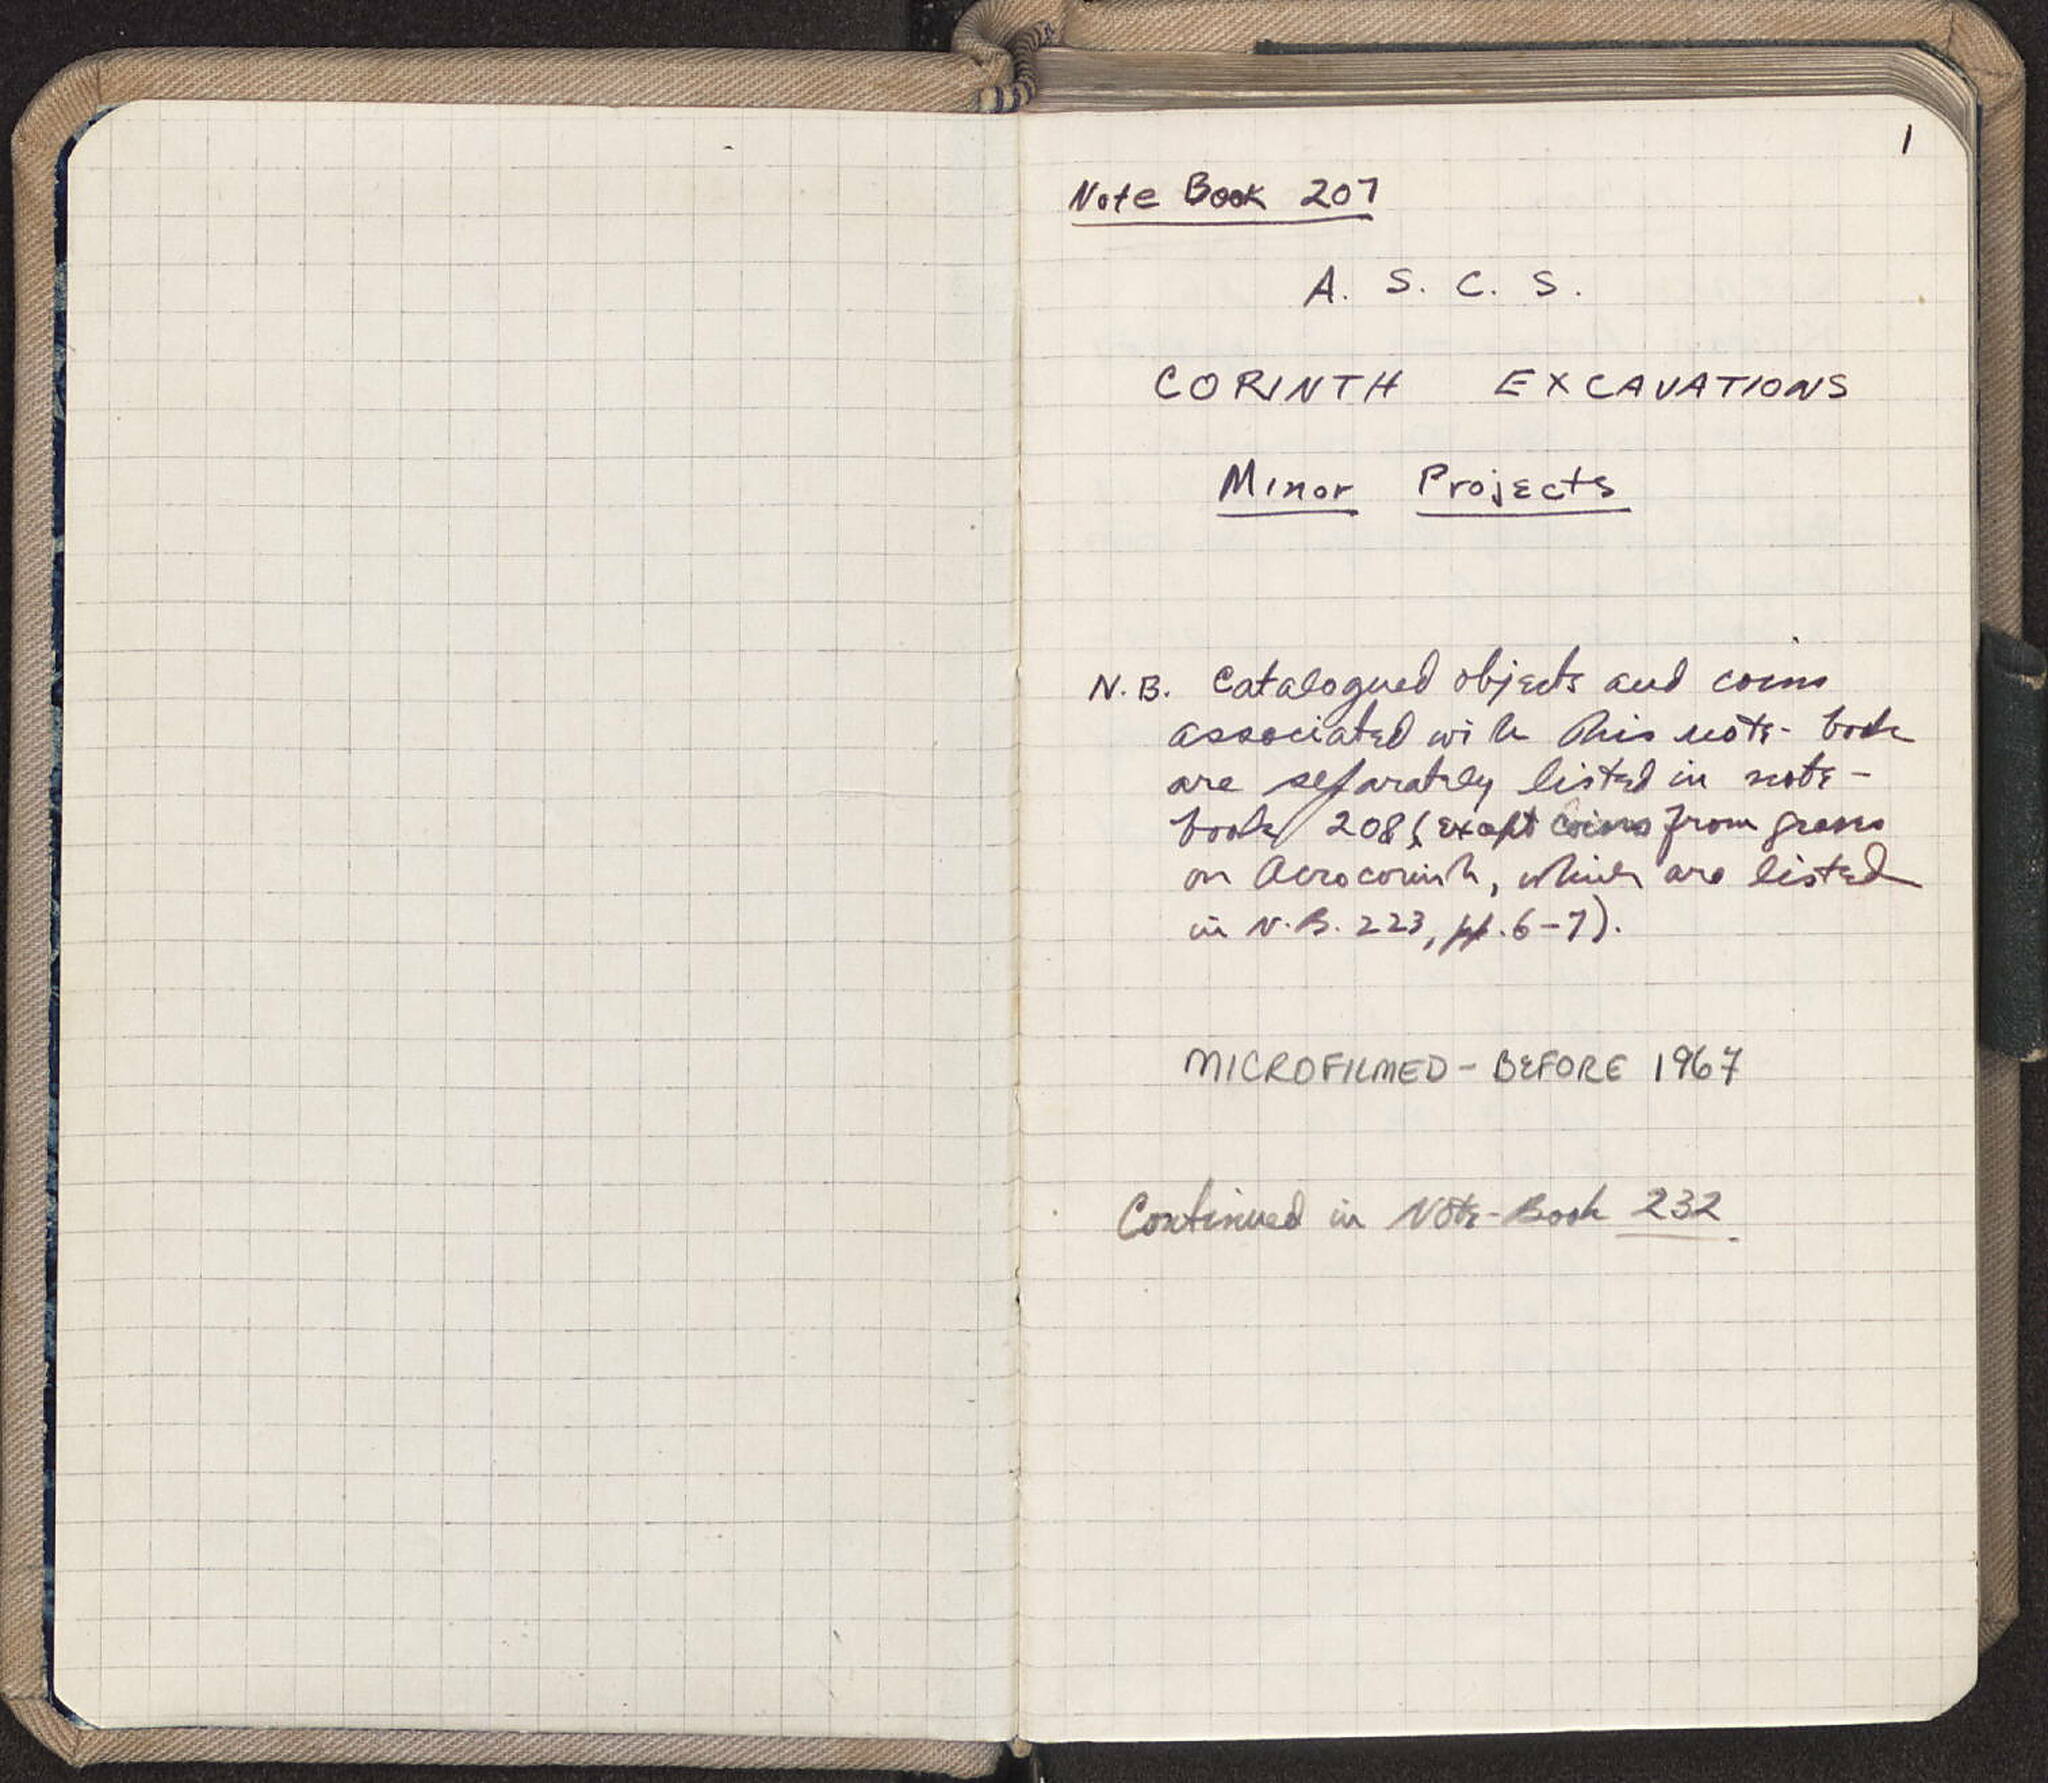 1
Note Book 207
A. S. C. S.
CORINTH EXCAVATIONS
Minor Projects
N.B. Catalogued objects and coins
associated with this note-book
are separately listed in note-
book 208 (except coins from graves
on Acrocorinth, which are listed
in N.B. 223, pp. 6-7).
MICROFILMED - BEFORE 1967
Continued in Note-Book 232.